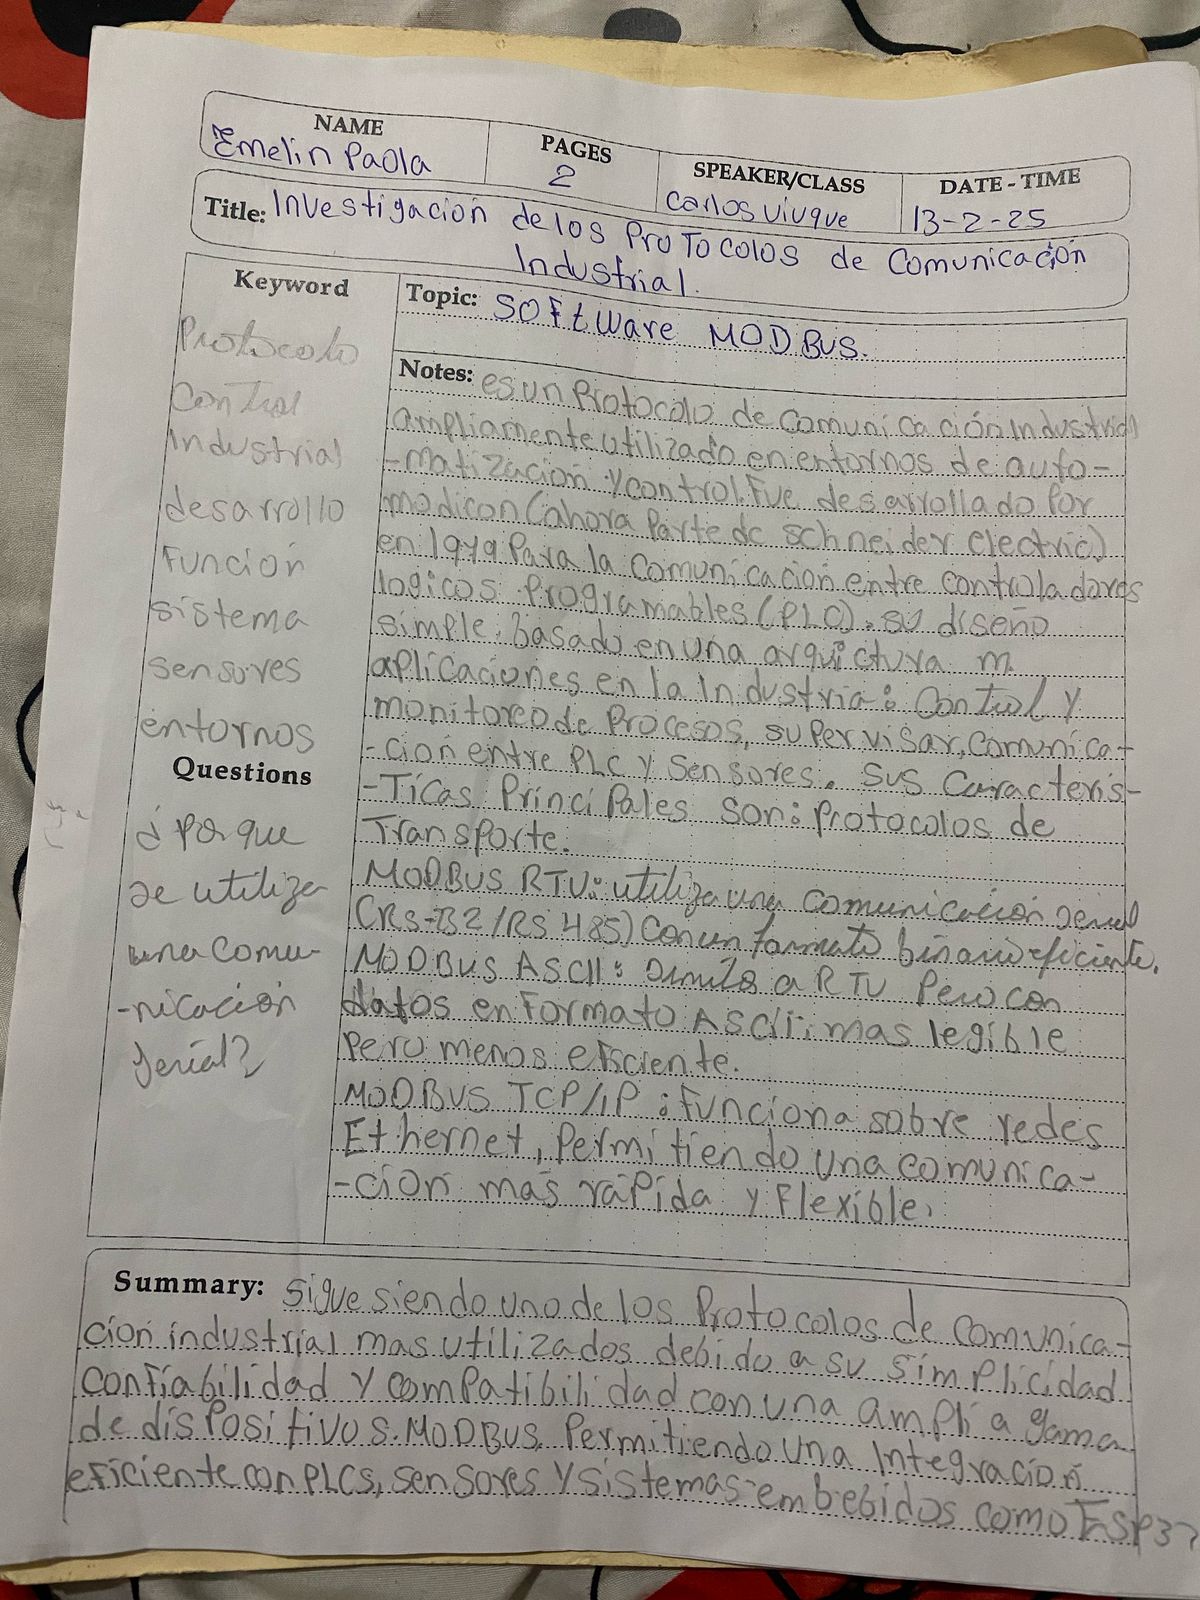 NAME
Emelin Paola
PAGES
2
SPEAKER/CLASS
Carlos Vivque
DATE - TIME
13-2-25
Title: Investigacion de los ProTocolos de Comunicación
Industrial.
Keyword
Protocolo
Control
Industrial
desarrollo
Función
sistema
sensores
entornos
Questions
¿por que
se utiliza
una comu-
-nicación
serial?
Topic: SOFtware MODBUS.
Notes: es un Protocolo de Comunicación Industrial
ampliamente utilizado en entornos de auto-
-matización y control. Fue desarrollado por
modicon (ahora Parte de schneider electric)
en 1979 Para la comunicacion entre controladores
logicos Programables (PLC). su diseño
simple, basado en una arquictura m.
aplicaciones en la Industria: Control y
monitoreo de Procesos, supervisar, comunica-
-cion entre PLC y sensores. Sus Caracteris-
-Ticas Principales son: Protocolos de
Transporte.
MODBUS RTU: utiliza una comunicación serial
(RS-B2/RS 485) Con un formato binario eficiente.
MODBUS ASCII: Similo a RTU Pero con
datos en Formato ASCII, mas legible
Pero menos eficiente.
MODBUS TCP/IP: Funciona sobre redes
Ethernet, Permitiendo una comunica-
-ción más rápida y Flexible.
Summary: Sigue siendo uno de los Protocolos de comunica-
cion industrial mas utilizados debido a su simplicidad
confiabilidad y compatibilidad con una amplia gama
de disPositivos. MODBUS Permitiendo una Integración
eficiente con PLCS, sensores y sistemas embebidos como ESP32